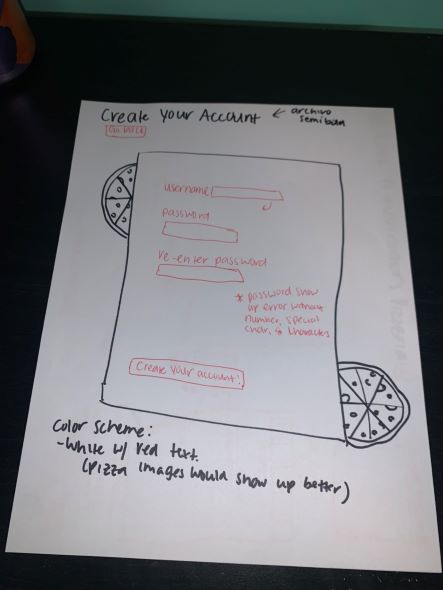 Create Your Account ← archivo
semibold
Go Back
username
password
re-enter password
* password show
up error without
number, special
char, & characters
Create your account!
Color scheme:
- White w/ red text.
(pizza images would show up better)